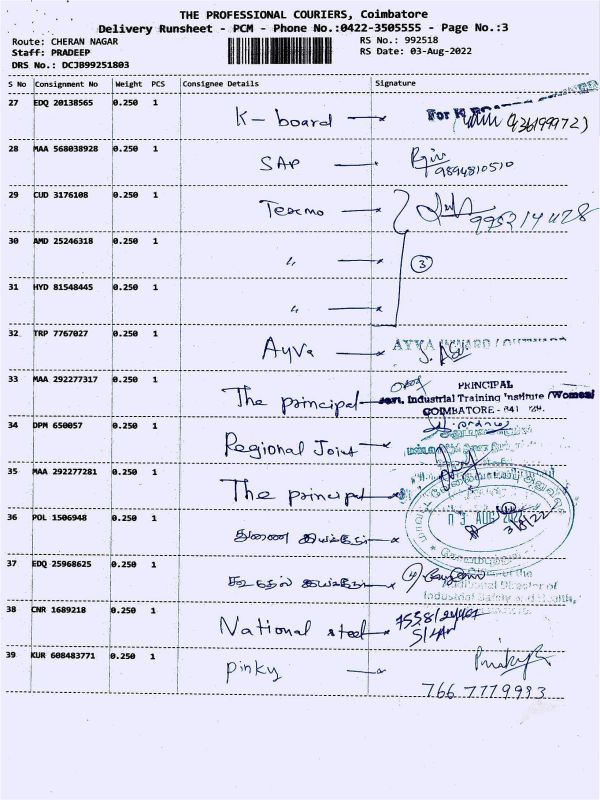 THE PROFESSIONAL COURIERS, Coimbatore
Delivery Runsheet - PCM - Phone No.:0422-3505555 - Page No.:3
Route: CHERAN NAGAR
RS No.: 992518
Staff: PRADEEP
RS Date: 03-Aug-2022
DRS No.: DCJB99251803
S No Consignment No Weight PCS Consignee Details Signature
27 EDQ 20138565 0.250 1 K-board For K
28 MAA 568038928 0.250 1 SAP 9894810510
29 CUD 3176108 0.250 1 Texmo
30 AMD 25246318 0.250 1 〃 3
31 HYD 81548445 0.250 1 〃
32 TRP 7767027 0.250 1 Ayva AYVA
33 MAA 292277317 0.250 1 The principal PRINCIPAL
Govt. Industrial Training Institute (Women)
COIMBATORE - 641
34 DPM 650057 0.250 1 Regional Joint
35 MAA 292277281 0.250 1 The principal
36 POL 1506948 0.250 1 துணை இயக்குநர் 03 AUG 3/8/22
37 EDQ 25968625 0.250 1 கூடுதல் இயக்குநர்
Additional Director of
Industrial Safety and Health,
38 CNR 1689218 0.250 1 National steel
39 KUR 608483771 0.250 1 pinky
766 7779993